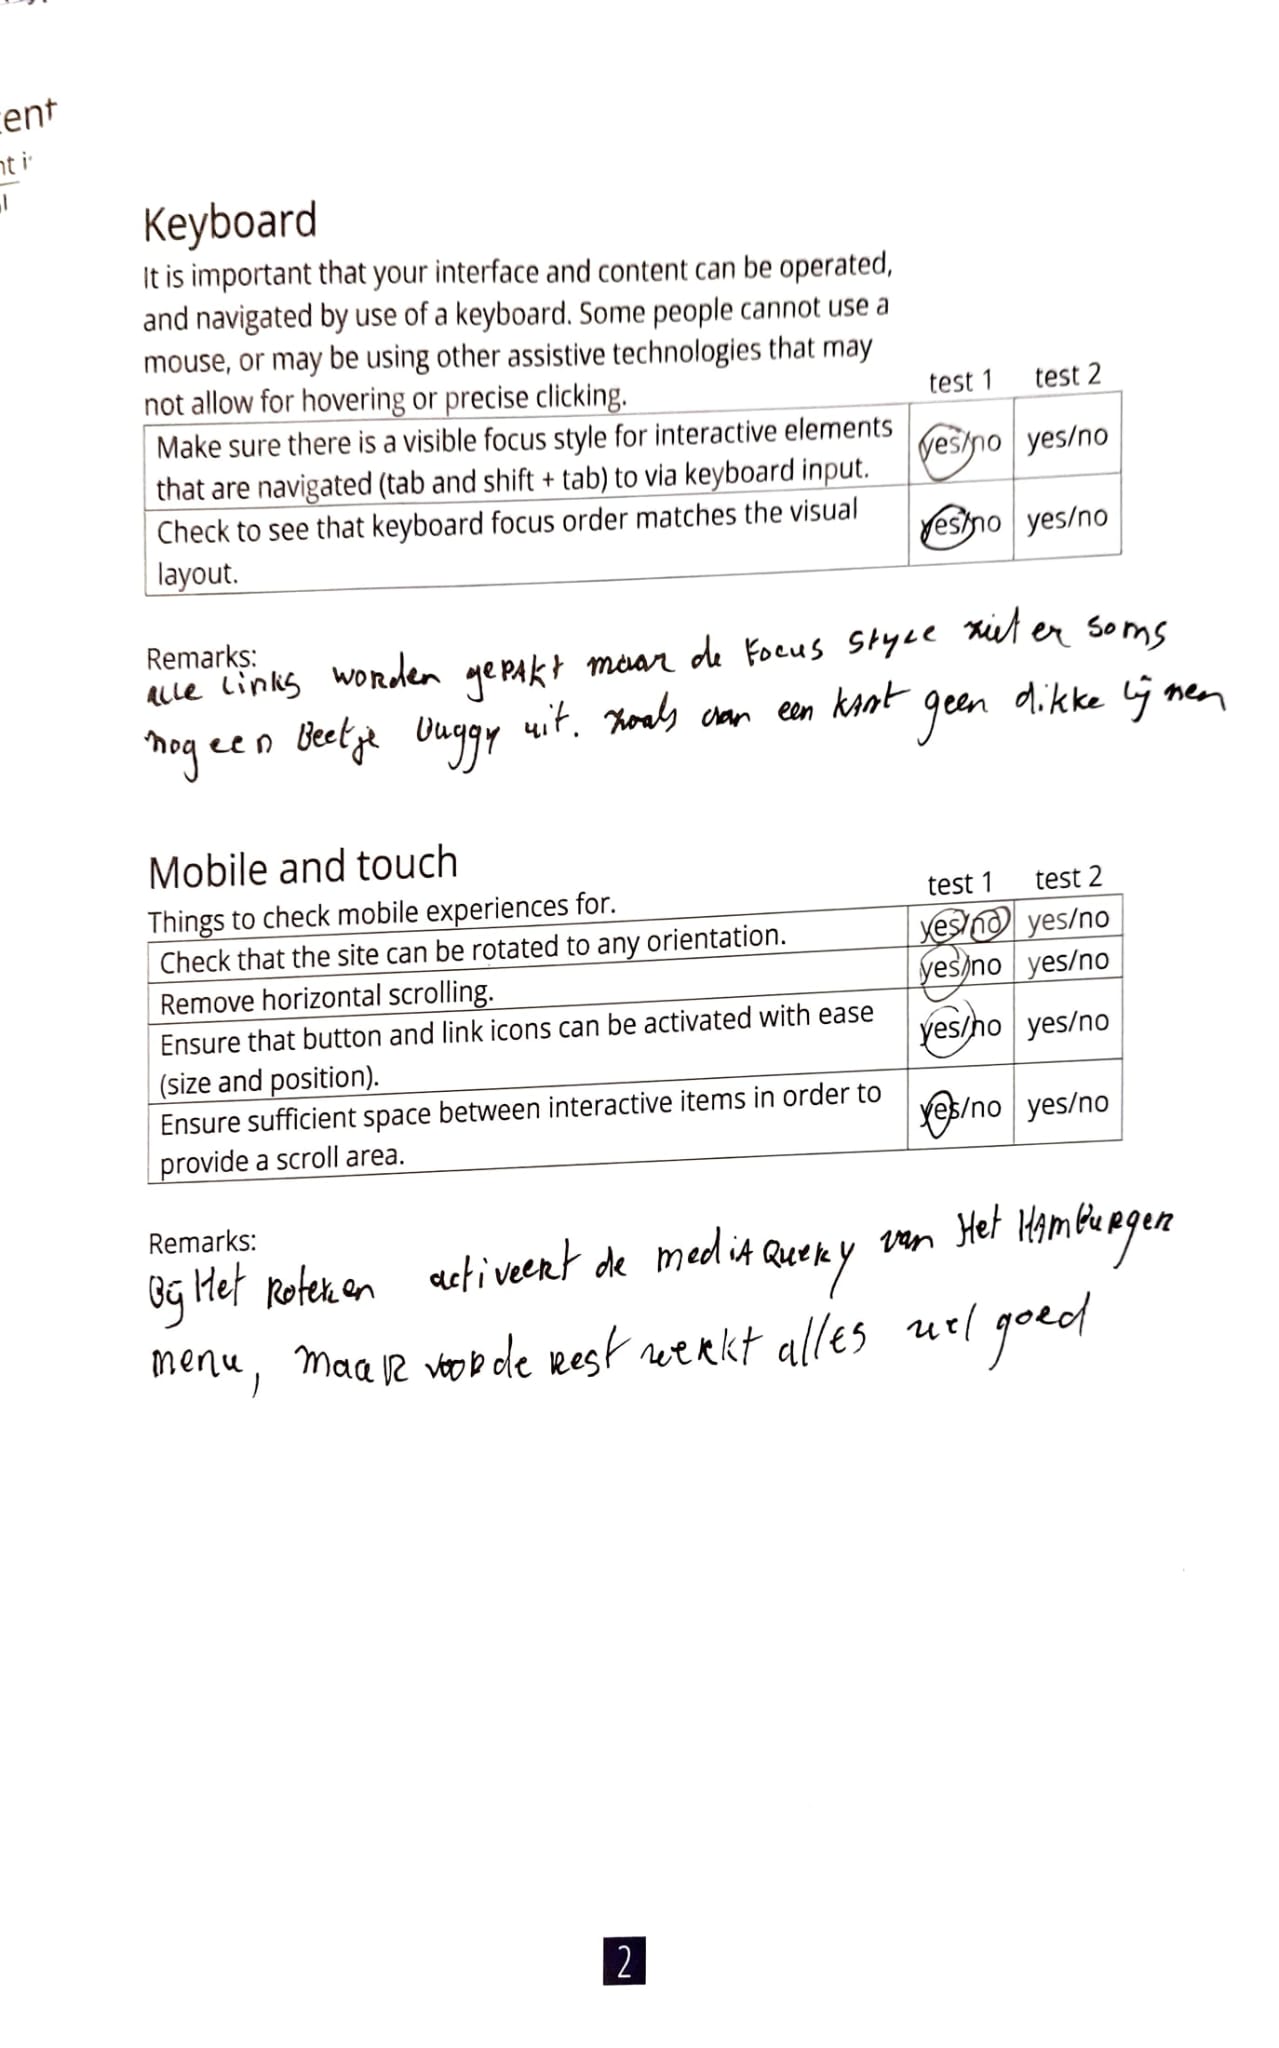 ent
nt i
Keyboard
It is important that your interface and content can be operated,
and navigated by use of a keyboard. Some people cannot use a
mouse, or may be using other assistive technologies that may
not allow for hovering or precise clicking.
test 1 test 2
Make sure there is a visible focus style for interactive elements
that are navigated (tab and shift + tab) to via keyboard input.
yes/no yes/no
Check to see that keyboard focus order matches the visual
layout.
yes/no yes/no
Remarks:
alle links worden gepakt maar de focus style ziet er soms
nog een Beetje buggy uit. zoals aan een kant geen dikke lijnen
Mobile and touch
Things to check mobile experiences for.
test 1 test 2
Check that the site can be rotated to any orientation.
yes/no yes/no
Remove horizontal scrolling.
yes/no yes/no
Ensure that button and link icons can be activated with ease
(size and position).
yes/no yes/no
Ensure sufficient space between interactive items in order to
provide a scroll area.
yes/no yes/no
Remarks:
Bij Het Roteren activeert de media Query van Het Hamburger
menu, maar voor de rest werkt alles wel goed
2